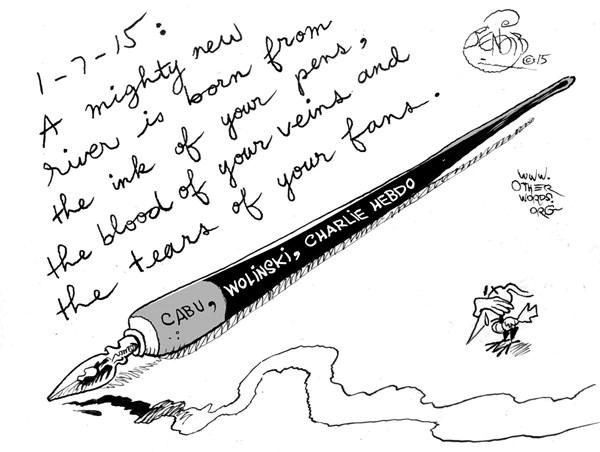 1-7-15:
A mighty new
river is born from
the ink of your pens,
the blood of your veins and
the tears of your fans.
©15
CABU, WOLINSKI, CHARLIE HEBDO
WWW.
OTHER
WORDS.
ORG